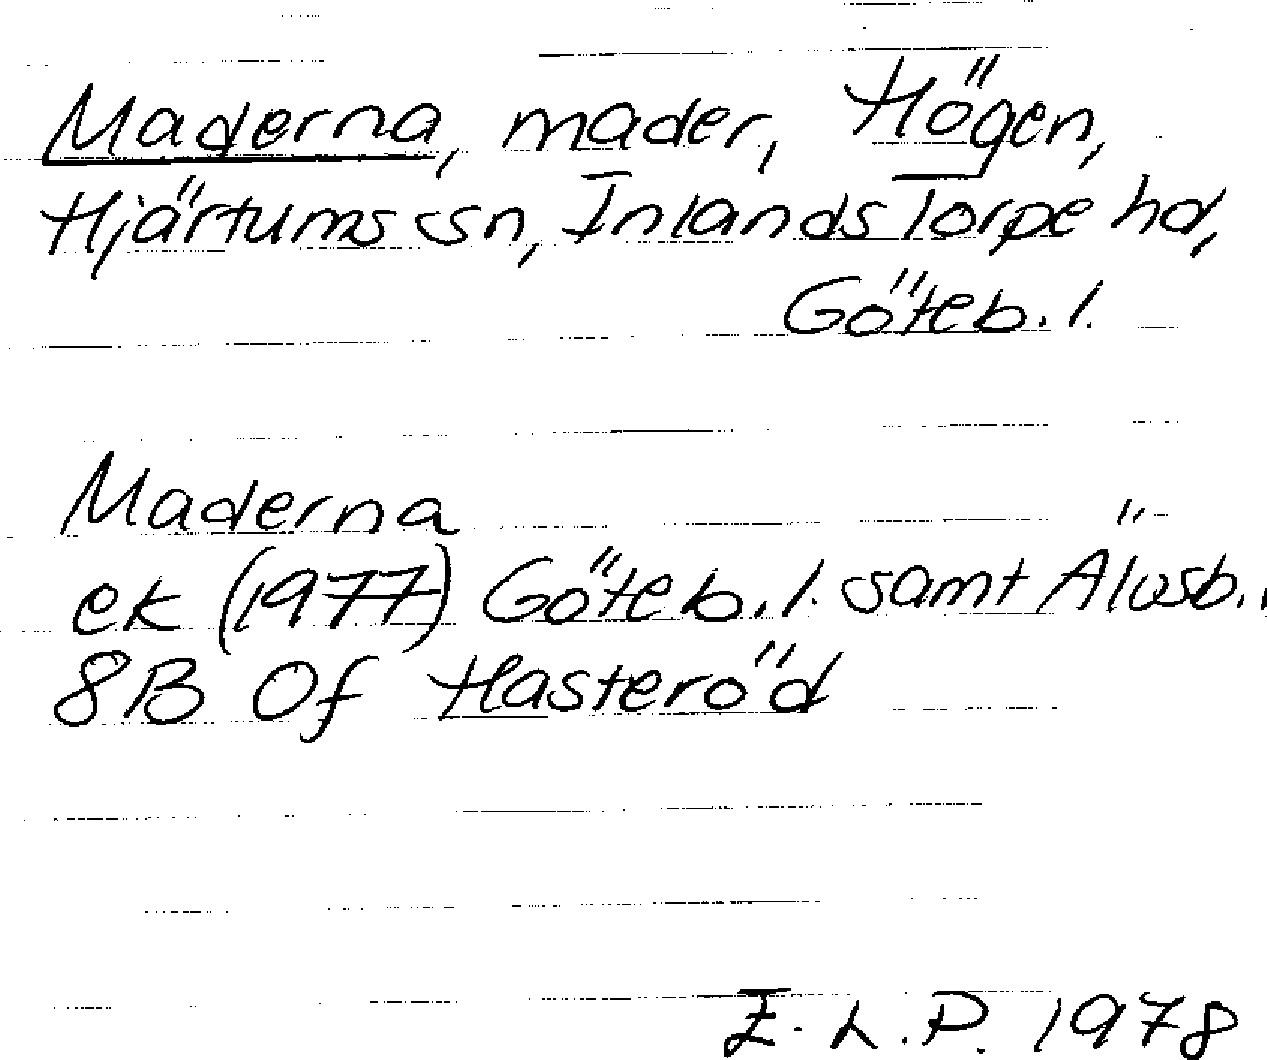 Maderna, mader, Högen,
Hjärtums sn, Inlands Torpe hd,
Göteb. l.
Maderna
ek (1977) Göteb. l. samt Älvsb.
8B 0f Hasteröd
E. L. P. 1978